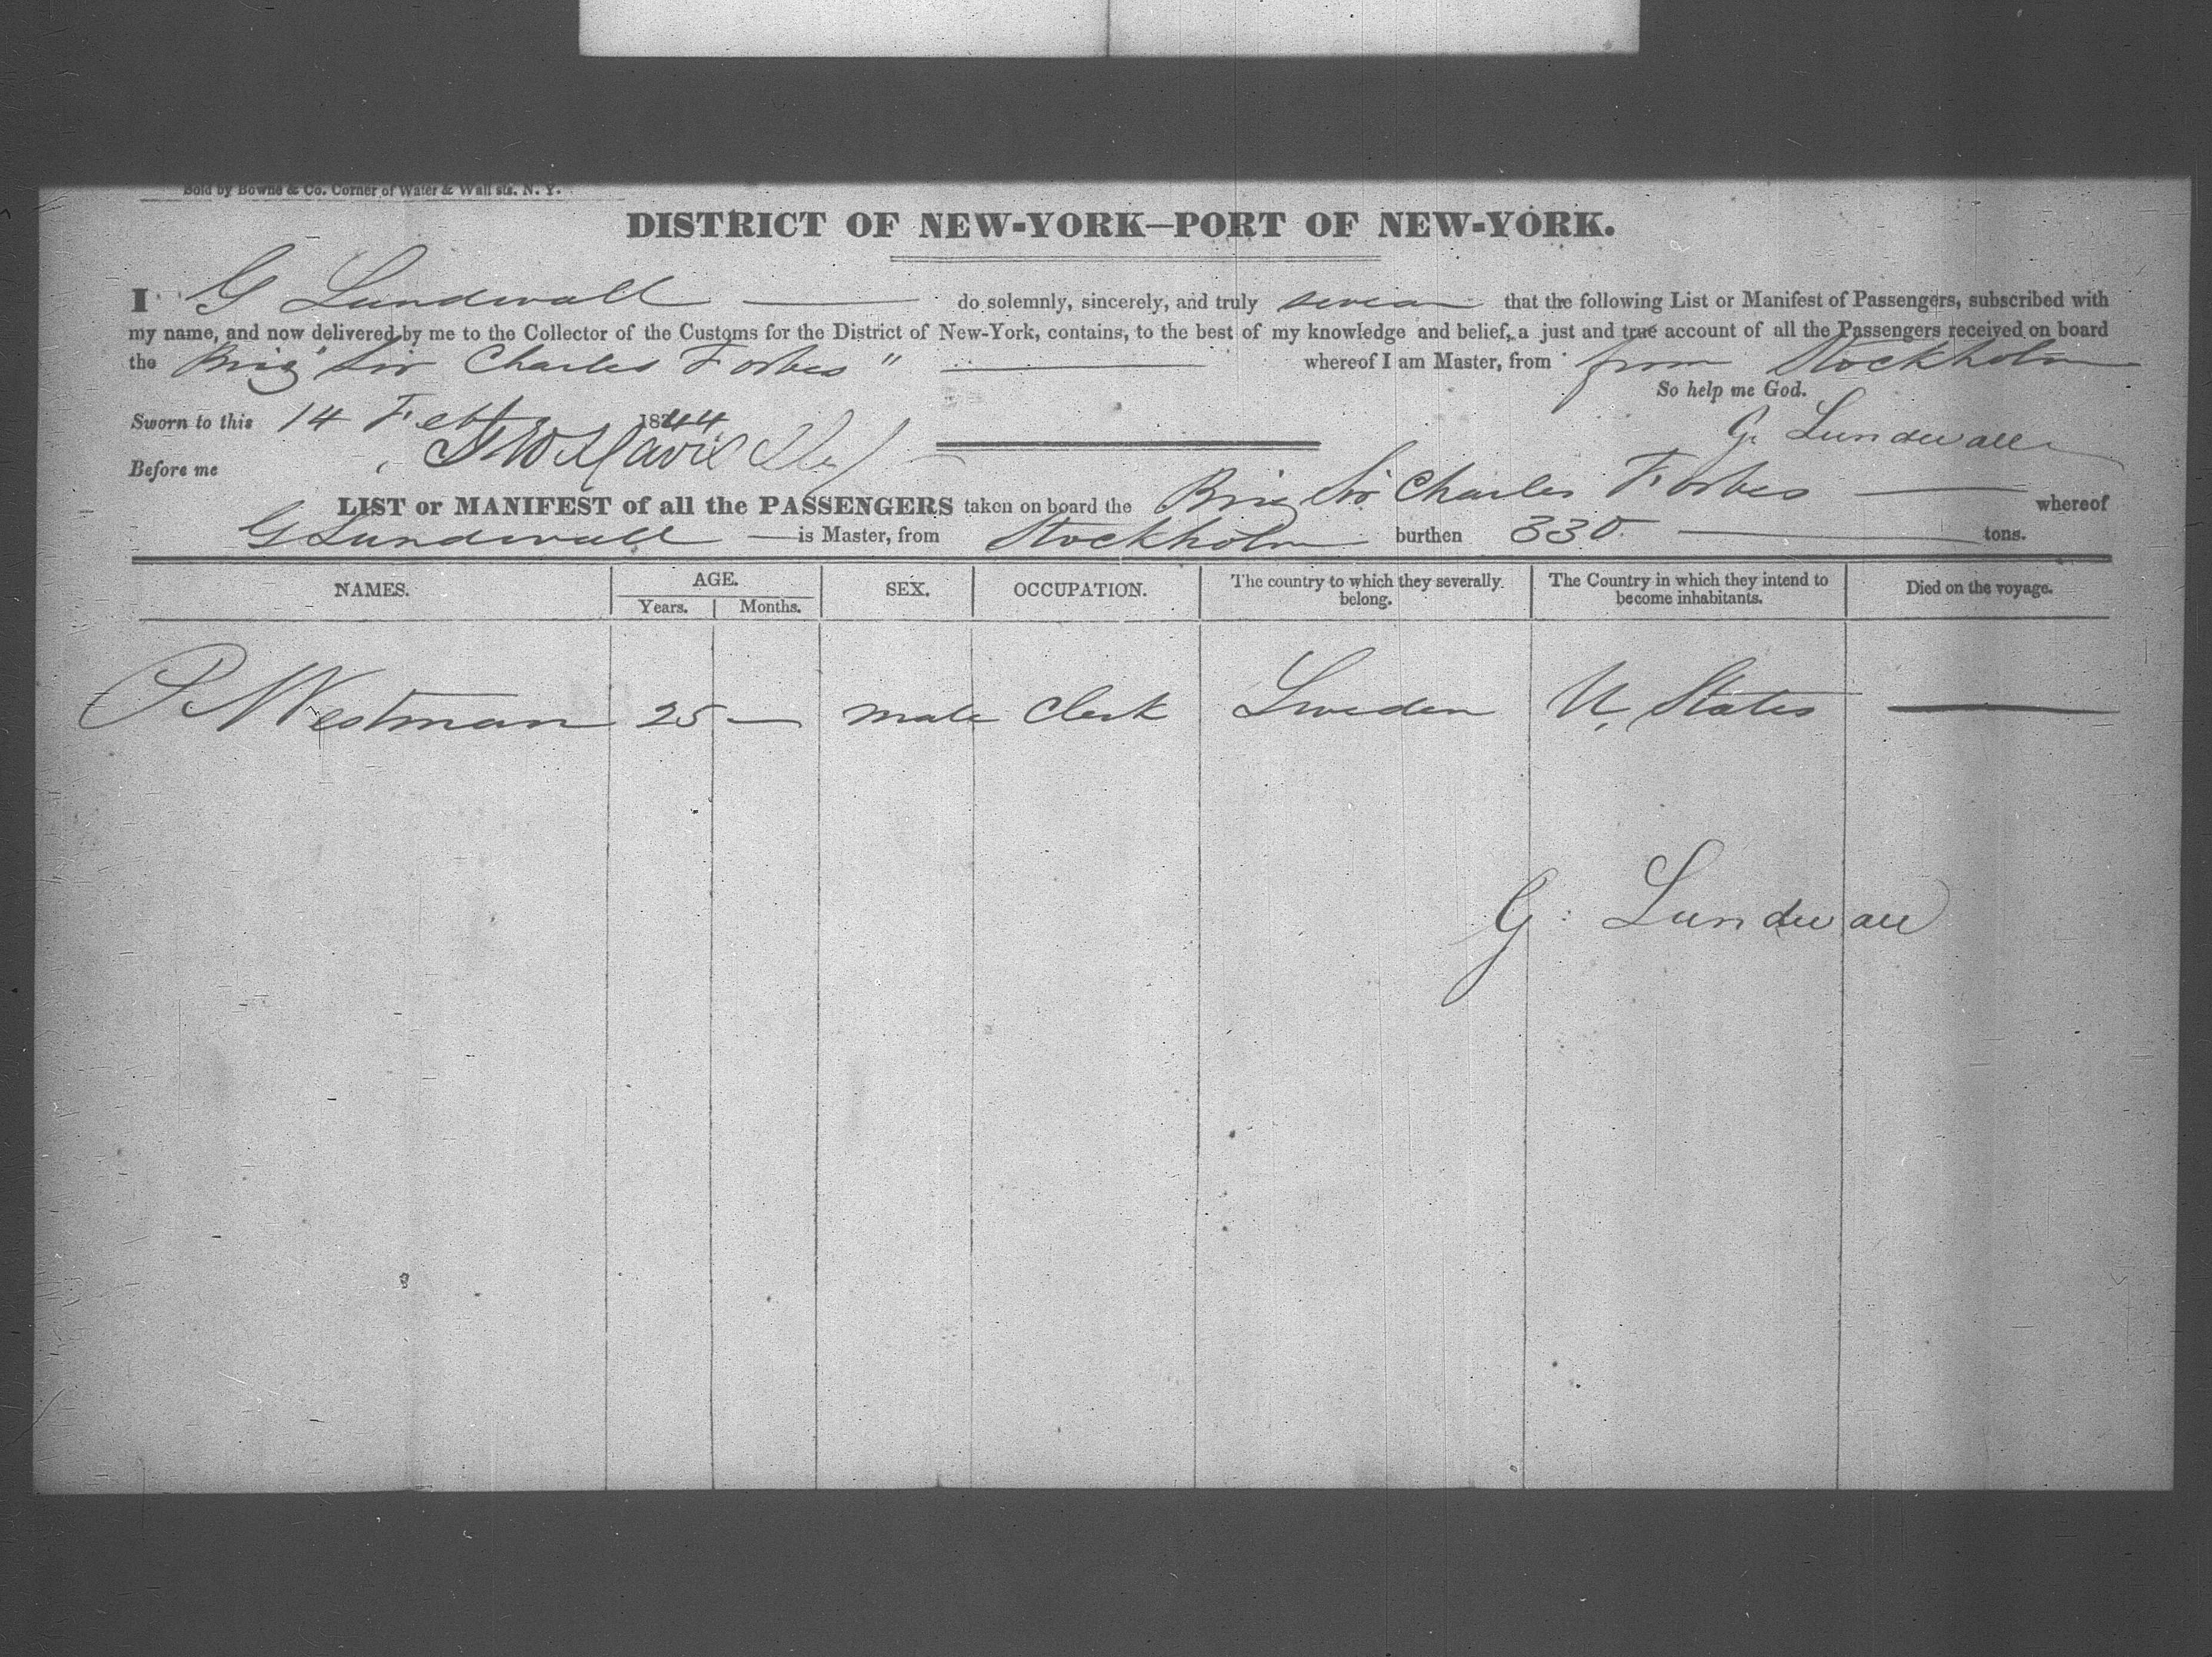 Sold by Bowne & Co. Corner of Water & Wall sts. N. Y.
DISTRICT OF NEW-YORK—PORT OF NEW-YORK.
I G Lundwall — do solemnly, sincerely, and truly swear that the following List or Manifest of Passengers, subscribed with
my name, and now delivered by me to the Collector of the Customs for the District of New-York, contains, to the best of my knowledge and belief, a just and true account of all the Passengers received on board
the Brig "Sir Charles Forbes" — whereof I am Master, from from Stockholm
So help me God.
Sworn to this 14 Feb 1844
G. Lundwall
Before me
LIST or MANIFEST of all the PASSENGERS taken on board the Brig Sir Charles Forbes — whereof
G Lundwall — is Master, from Stockholm burthen 330 — tons.
NAMES. AGE. SEX. OCCUPATION. The country to which they severally belong. The Country in which they intend to become inhabitants. Died on the voyage.
Years. Months.
P Westman 25 — male Clerk Sweden U. States —
G. Lundwall